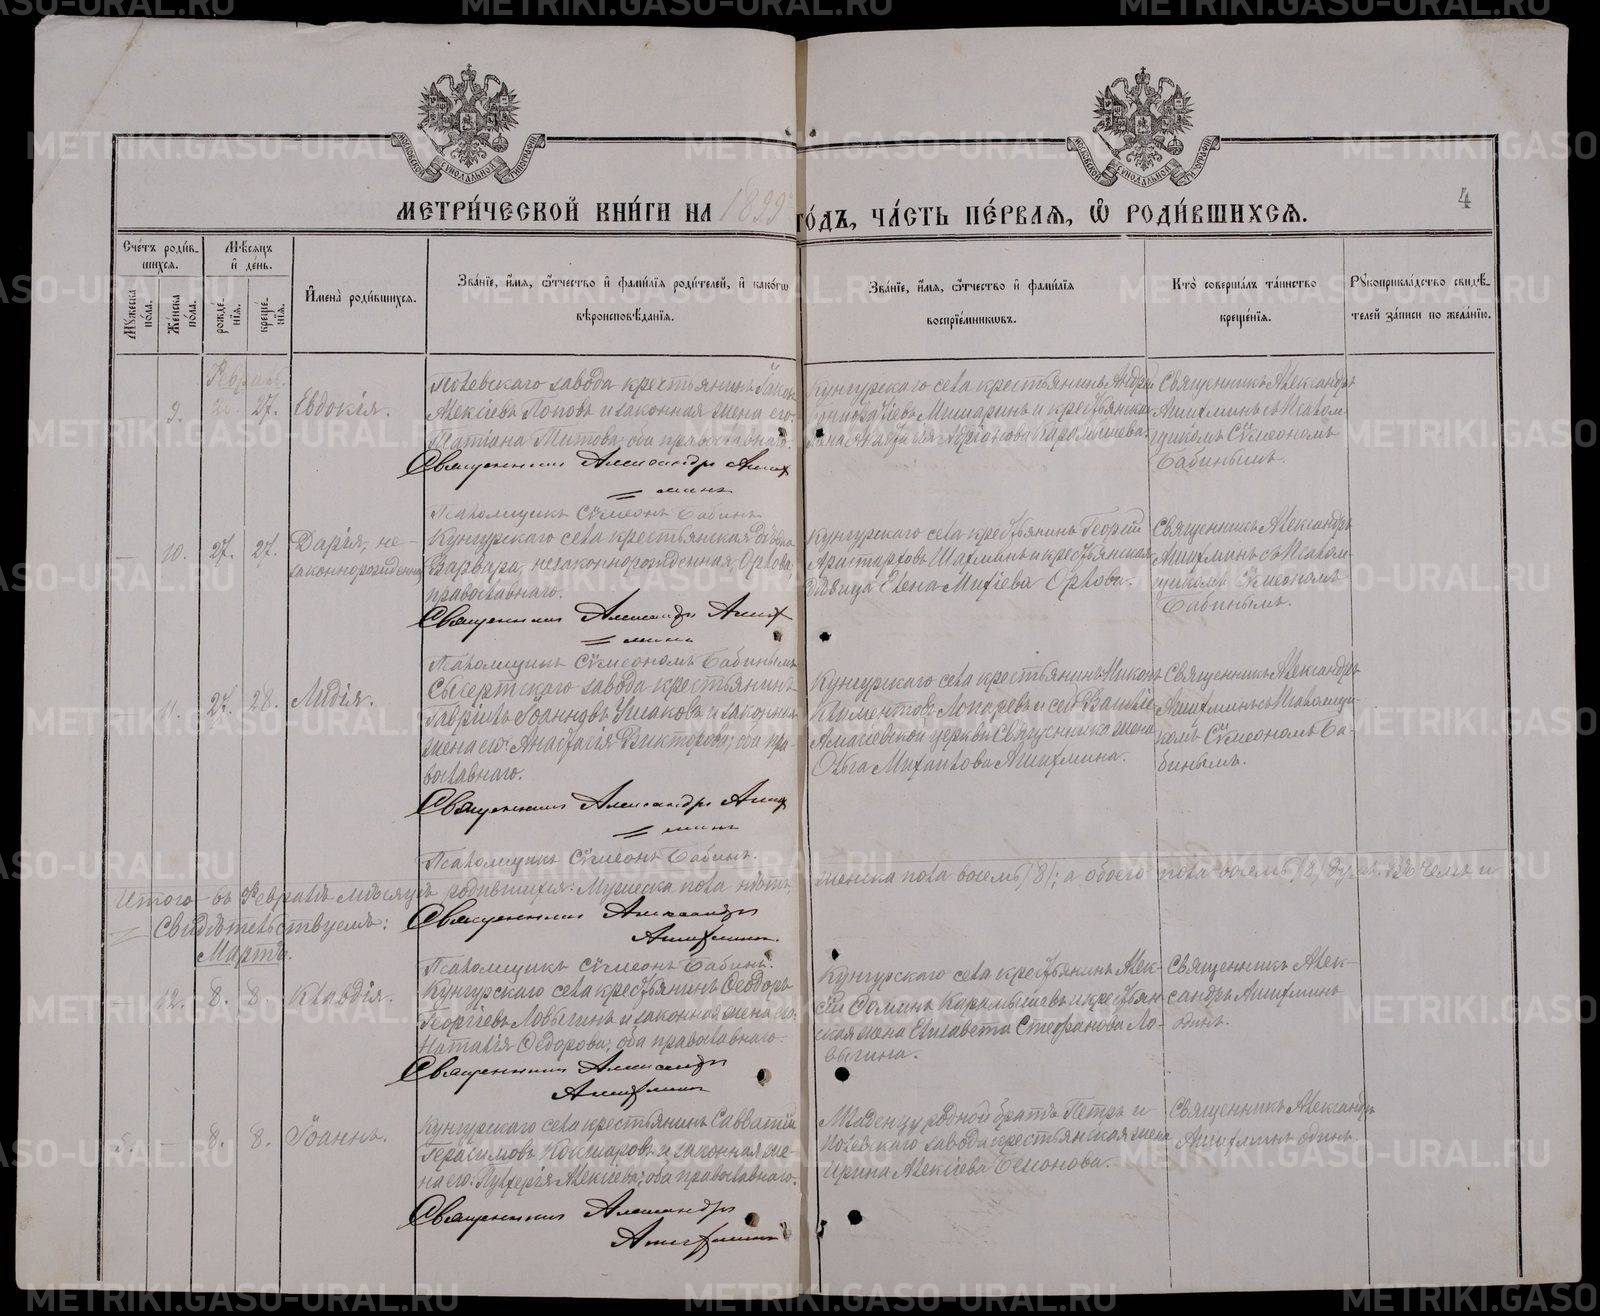 МЕТРИ́ЧЕСКОЙ КНИ́ГИ НА 1899 ГО́ДЪ, ЧА́СТЬ ПЕ́РВАЯ, Ѽ РОДИ́ВШИХСЯ.
4
Сче́тъ роди́в-
шихся.
Мѣсяцъ
и де́нь.
Мꙋжеска по́ла.
Же́нска по́ла.
рожде́-
нія.
креще́-
нія.
И҆мена̀ роди́вшихся.
Зва́ніе, и҆́мя, ѻ҆́тчество и҆ фами́лія роди́телей, и҆ како́гѡ
вѣроисповѣ́данія.
Зва́ніе, и҆́мя, ѻ҆́тчество и҆ фами́лія
воспріе́мниковъ.
Кто̀ соверша́лъ та́инство
креще́нія.
Рꙋкоприкла́дство свидѣ́-
телей за́писи по жела́нію.
Феврал.
9. 27. Евдокія.
завода крестьянинъ Іаковъ
Алексіевъ Поповъ и законная жена его
Татіана Титова, оба православнаго.
Священникъ Александръ Аших
минъ
Псаломщикъ Сѵмеонъ Бабинъ.
Кунгурскаго села крестьянинъ
Мишаринъ и крестьянская
Карамышева.
Священникъ Александръ
Ашихминъ съ Псалом-
щикомъ Сѵмеономъ
Бабинымъ.
10. 27. 27. Дарія, не-
законнорожденная
Кунгурскаго села крестьянская дѣвица
Варвара, незаконнорожденная, Орлова,
православнаго.
Священникъ Александръ Аших
минъ
Псаломщикъ Сѵмеономъ Бабинымъ
Кунгурскаго села крестьянинъ Георгій
Аристарховъ и крестьянская
дѣвица Елена Михеева Орлова.
Священникъ Александръ
Ашихминъ съ Псалом-
щикомъ Сѵмеономъ
Бабинымъ.
11. 27. 28. Лидія.
Сысертскаго завода крестьянинъ
Гавріилъ Іоанновъ и законная
жена его Анастасія Викторова; оба пра-
вославнаго.
Священникъ Александръ Аших
минъ
Псаломщикъ Сѵмеонъ Бабинъ.
Кунгурскаго села крестьянинъ Никол
Климентовъ Лопаревъ и
церкви Священника жена
Ольга Михаилова Ашихмина.
Священникъ Александръ
Ашихминъ съ Псаломщи-
комъ Сѵмеономъ Ба-
бинымъ.
Итого въ Февралѣ мѣсяцѣ родившихся: Мужеска пола нѣтъ, женска пола восемь /8/; а обоего пола восемь /8/ душъ. Въ чемъ и
Свидѣтельствуемъ:
Священникъ Александръ
Ашихминъ.
Псаломщикъ Сѵмеонъ Бабинъ.
Мартъ.
12. 8. 8. Клавдія.
Кунгурскаго села крестьянинъ Ѳеодоръ
Георгіевъ Ловыгинъ и законная жена его
Наталія Ѳедорова; оба православнаго.
Священникъ Александръ
Ашихминъ
Кунгурскаго села крестьянинъ Алек-
сій Ѳоминъ Карамышевъ и крестьян-
ская жена Елисавета Стефанова Ло-
выгина.
Священникъ Алек-
сандръ Ашихминъ
одинъ.
5. — 8. 8. Іоаннъ.
Кунгурскаго села крестьянинъ Савватій
Герасимовъ Кокшаровъ и законная же-
на его Алексіева; оба православнаго.
Священникъ Александръ
Ашихминъ
Младенцу родной братъ Петръ и
завода крестьянская жена
Ирина Алексіева
Священникъ Александръ
Ашихминъ одинъ.